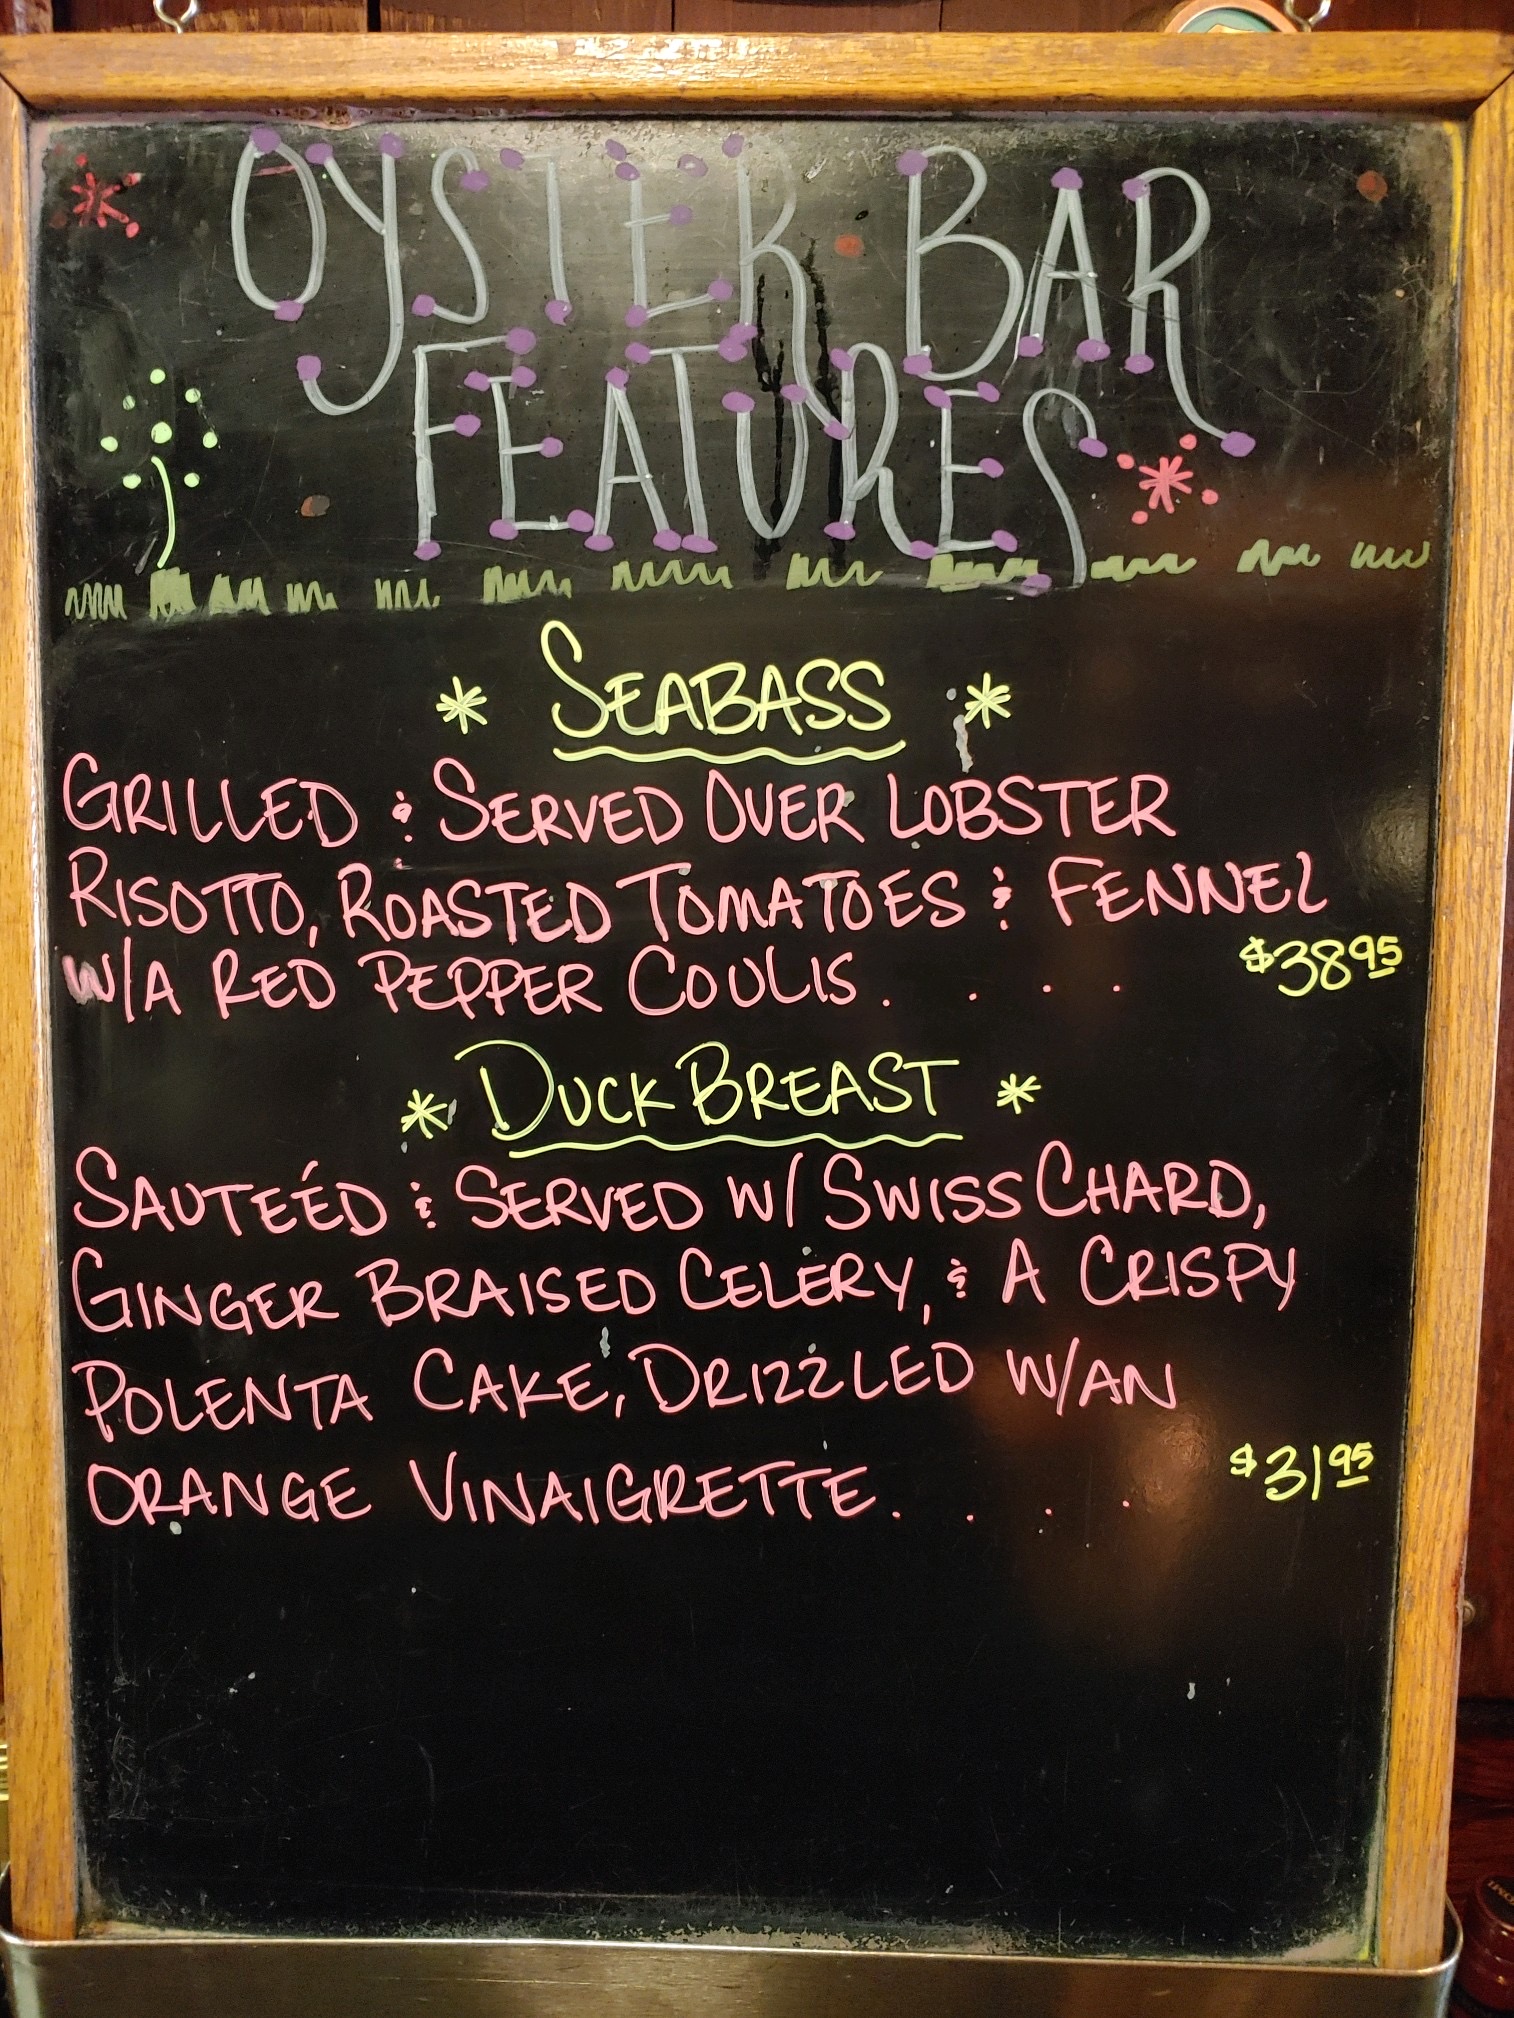 OYSTER BAR
FEATURES
* SEABASS *
GRILLED & SERVED OVER LOBSTER
RISOTTO, ROASTED TOMATOES & FENNEL
W/A RED PEPPER COULIS . . . . $38.95
* DUCK BREAST *
SAUTEÉD & SERVED W/ SWISS CHARD,
GINGER BRAISED CELERY, & A CRISPY
POLENTA CAKE, DRIZZLED W/AN
ORANGE VINAIGRETTE . . . . $31.95